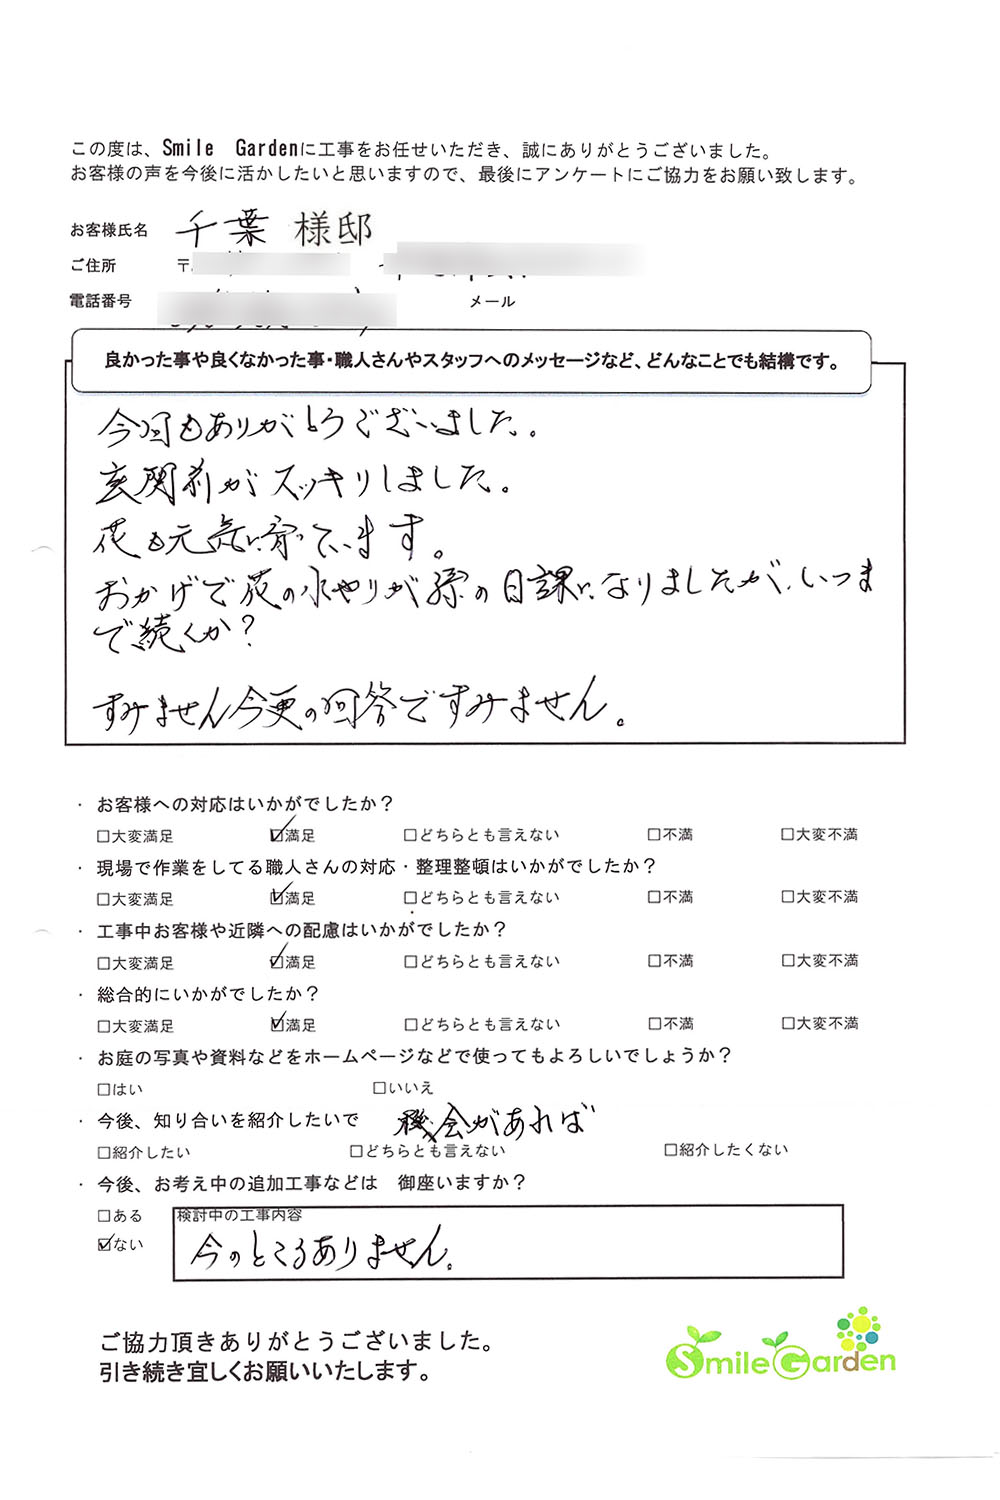 この度は、Smile Gardenに工事をお任せいただき、誠にありがとうございました。
お客様の声を今後に活かしたいと思いますので、最後にアンケートにご協力をお願い致します。
お客様氏名 千葉 様邸
ご住所 〒
電話番号 メール
良かった事や良くなかった事・職人さんやスタッフへのメッセージなど、どんなことでも結構です。
今回もありがとうございました。
玄関前がスッキリしました。
花も元気に育っています。
おかげで花の水やりが孫の日課になりましたが、いつま
で続くか?
すみません今更の回答ですみません。
・ お客様への対応はいかがでしたか?
□大変満足 ☑満足 □どちらとも言えない □不満 □大変不満
・ 現場で作業をしてる職人さんの対応・整理整頓はいかがでしたか?
□大変満足 ☑満足 □どちらとも言えない □不満 □大変不満
・ 工事中お客様や近隣への配慮はいかがでしたか?
□大変満足 ☑満足 □どちらとも言えない □不満 □大変不満
・ 総合的にいかがでしたか?
□大変満足 ☑満足 □どちらとも言えない □不満 □大変不満
・ お庭の写真や資料などをホームページなどで使ってもよろしいでしょうか?
□はい □いいえ
・ 今後、知り合いを紹介したいで 機会があれば
□紹介したい □どちらとも言えない □紹介したくない
・ 今後、お考え中の追加工事などは 御座いますか?
□ある 検討中の工事内容
☑ない 今のところありません。
ご協力頂きありがとうございました。
引き続き宜しくお願いいたします。
Smile Garden